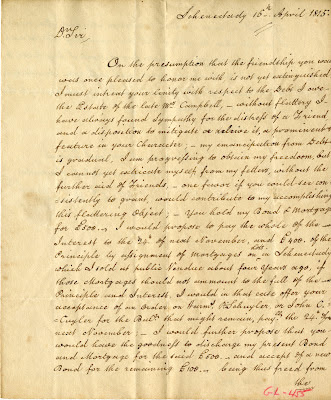 Schenectady 15th April 1815
Dr Sir,
On the presumption that the friendship you were
once pleased to honor me with is not yet extinguished
I must intreat your lenity with respect to the Debt I owe
the Estate of the late Mr Campbell, – without flattery I
have always found Sympathy for the distress of a Friend
and a disposition to mitigate or relieve it, a prominent
feature in your Character; – my emancipation from Debt
is gradual, I am progressing to obtain my freedom, but
I cannot yet extricate myself from my fetters, without the
further aid of Friends, – one favor if you could see con
sistently to grant, would contribute to my accomplishing
this flattering Object; – You hold my Bond & Mortgage
for £500.. I would propose to pay the whole of the
Interest to the 24th of next November, and £400. of the
Principle by assignment of Mortgages on Lots in Schenectady
which I sold at public Vendue about four years ago, if
those Mortgages should not ammount to the full of the
Principle and Interest, I would in that case offer your
acceptance of an Order on or John C.
Cuyler for the Balce that might remain, payle the 24th of
next November; – I would further propose that you
would have the goodness to discharge my present Bond
and Mortgage for the said £500 – and accept of a new
Bond for the remaining £100.. being thus freed from
the
GL-455